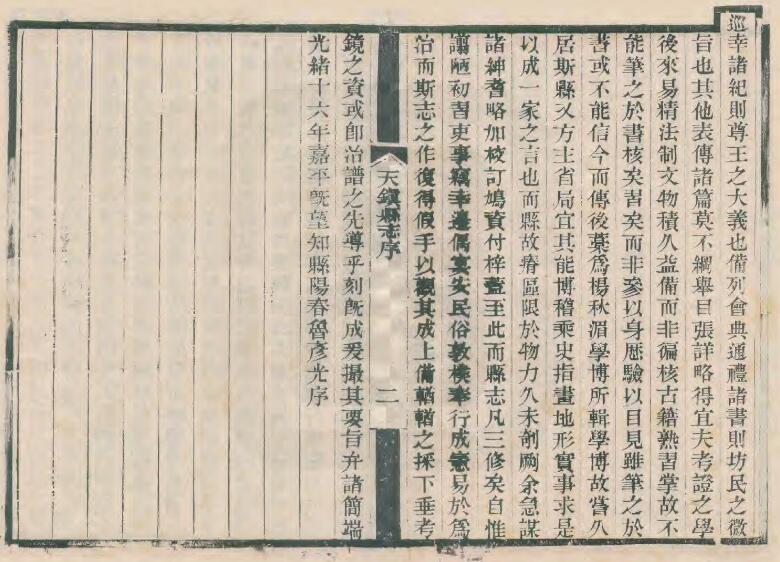 巡幸諸紀則尊王之大義也備列會典通禮諸書則坊民之微
旨也其他表傳諸篇莫不綱舉目張詳略得宜夫考證之學
後來易精法制文物積久益備而非徧核古籍熟習掌故不
能筆之於書核矣習矣而非參以身歷驗以目見雖筆之於
書或不能信今而傳後藁爲楊秋湄學博所輯學博故嘗久
居斯縣又方主省局宜其能博稽乘史指畫地形實事求是
以成一家之言也而縣故瘠區限於物力久未剞劂余急謀
諸紳耆略加校訂鳩資付梓蓋至此而縣志凡三修矣自惟
譾陋初習吏事竊幸邊僑宴安民俗敦樸奉行成憲易於爲
治而斯志之作復得假手以觀其成上備輶輶之採下垂考
天鎮縣志序
二
鏡之資或卽治譜之先導乎刻旣成爰撮其要旨弁諸簡端
光緒十六年嘉平旣望知縣陽春魯彥光序